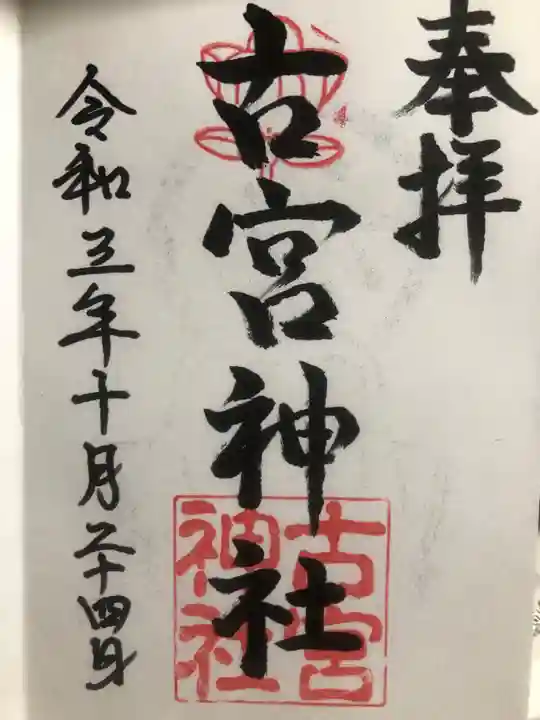 奉拝
古宮神社
古宮
神社
令和三年十月二十四日